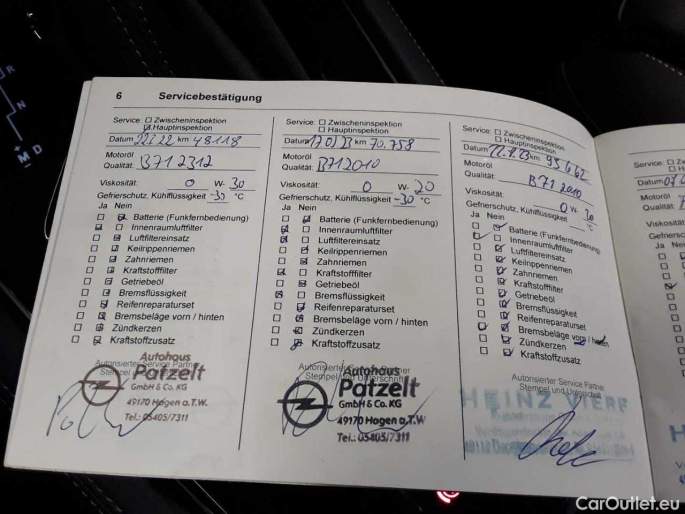 6 Servicebestätigung
Service: Zwischeninspektion
Hauptinspektion
Datum km 48118
Motoröl
Qualität: B71 2312
Viskosität: 0 W- 30
Gefrierschutz, Kühlflüssigkeit -30 °C
Ja Nein
Batterie (Funkfernbedienung)
Innenraumluftfilter
Luftfiltereinsatz
Keilrippenriemen
Zahnriemen
Kraftstofffilter
Getriebeöl
Bremsflüssigkeit
Reifenreparaturset
Bremsbeläge vorn / hinten
Zündkerzen
Kraftstoffzusatz
Autorisierter Service Partner
Autohaus
Patzelt
GmbH & Co. KG
49170 Hagen a.T.W.
Tel.: 05405/7311
Service: Zwischeninspektion
Hauptinspektion
Datum 17 03 23 km 70.758
Motoröl
Qualität: B71 2010
Viskosität: 0 W- 20
Gefrierschutz, Kühlflüssigkeit -30 °C
Ja Nein
Batterie (Funkfernbedienung)
Innenraumluftfilter
Luftfiltereinsatz
Keilrippenriemen
Zahnriemen
Kraftstofffilter
Getriebeöl
Bremsflüssigkeit
Reifenreparaturset
Bremsbeläge vorn / hinten
Zündkerzen
Kraftstoffzusatz
Autorisierter Service Partner
Stempel und Unterschrift
Autohaus
Patzelt
GmbH & Co. KG
49170 Hagen a.T.W
Tel.: 05405/7311
Service: Zwischeninspektion
Hauptinspektion
Datum km
Motoröl
Qualität: B71 2010
Viskosität: 0 W- 30
Gefrierschutz, Kühlflüssigkeit °C
Ja Nein
Batterie (Funkfernbedienung)
Innenraumluftfilter
Luftfiltereinsatz
Keilrippenriemen
Zahnriemen
Kraftstofffilter
Getriebeöl
Bremsflüssigkeit
Reifenreparaturset
Bremsbeläge vorn / hinten
Zündkerzen
Kraftstoffzusatz
Autorisierter Service Partner
Stempel und Unterschrift
HEINZ
Service:
Datum
Motoröl
Qualität:
Viskosität
Ja Nein
R
N
D
M
CarOutlet.eu